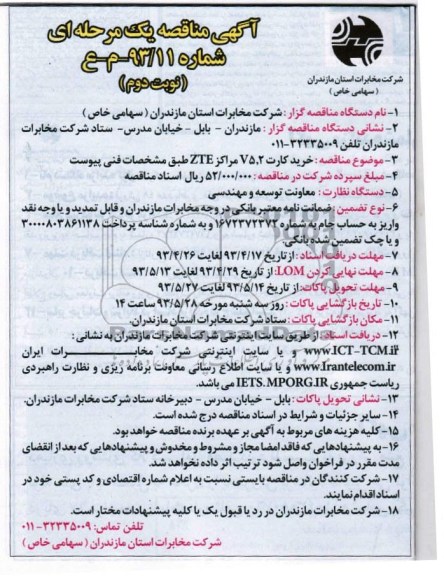 آگهی مناقصه یک مرحله ای
شماره ۹۳/۱۱-م-ع
(نوبت دوم)
شرکت مخابرات استان مازندران
(سهامی خاص)
۱- نام دستگاه مناقصه گزار : شرکت مخابرات استان مازندران ( سهامی خاص )
۲- نشانی دستگاه مناقصه گزار : مازندران - بابل - خیابان مدرس- ستاد شرکت مخابرات
مازندران تلفن ۳۲۳۳۵۰۰۹-۰۱۱
۳- موضوع مناقصه : خرید کارت V۵,۲ مراکز ZTE طبق مشخصات فنی پیوست
۴- مبلغ سپرده شرکت در مناقصه : ۵۲/۰۰۰/۰۰۰ ریال اسناد مناقصه
۵- دستگاه نظارت : معاونت توسعه و مهندسی
۶- نوع تضمین : ضمانت نامه معتبر بانکی در وجه مخابرات مازندران و قابل تمدید و یا وجه نقد
واریز به حساب جام به شماره ۱۶۷۲۳۷۲۳۷۲ و به شماره شناسه پرداخت ۳۰۰۰۰۸۰۳۸۶۱۱۳۸
و یا چک تضمین شده بانکی.
۷- مهلت دریافت اسناد : از تاریخ ۹۳/۴/۱۷ لغایت ۹۳/۴/۲۶
۸- مهلت نهایی کردن LOM: از تاریخ ۹۳/۴/۲۹ لغایت ۹۳/۵/۱۳
۹- مهلت تحویل پاکات : از تاریخ ۹۳/۵/۱۴ لغایت ۹۳/۵/۲۷
۱۰- تاریخ بازگشایی پاکات : روز سه شنبه مورخه ۹۳/۵/۲۸ ساعت ۱۴
۱۱- مکان بازگشایی پاکات : ستاد شرکت مخابرات استان مازندران.
۱۲- دریافت اسناد : از طریق سایت اینترنتی شرکت مخابرات مازندران به نشانی :
www.ICT-TCM.ir و یا سایت اینترنتی شرکت مخابرات ایران
www.Irantelecom.ir و یا سایت اطلاع رسانی معاونت برنامه ریزی و نظارت راهبردی
ریاست جمهوری IETS.MPORG.IR می باشد.
۱۳- نشانی تحویل پاکات : بابل - خیابان مدرس - دبیرخانه ستاد شرکت مخابرات مازندران.
۱۴- سایر جزئیات و شرایط در اسناد مناقصه درج شده است.
۱۵- کلیه هزینه های مربوط به آگهی بر عهده برنده مناقصه خواهد بود.
۱۶- به پیشنهادهایی که فاقد امضا مجاز و مشروط و مخدوش و پیشنهادهایی که بعد از انقضای
مدت مقرر در فراخوان واصل شود ترتیب اثر داده نخواهد شد.
۱۷- شرکت کنندگان در مناقصه بایستی نسبت به اعلام شماره اقتصادی و کد پستی خود در
اسناد اقدام نمایند.
۱۸- شرکت مخابرات مازندران در رد یا قبول یک یا کلیه پیشنهادات مختار است.
تلفن تماس: ۳۲۳۳۵۰۰۹-۰۱۱
شرکت مخابرات استان مازندران ( سهامی خاص )